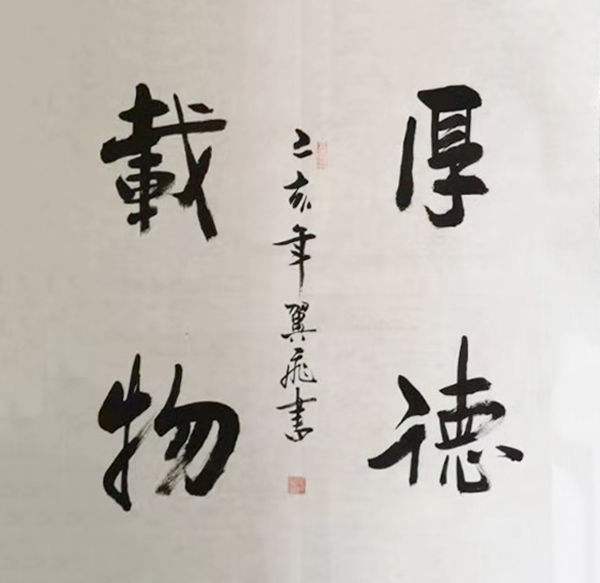 厚德
載物
己亥年翼飛書